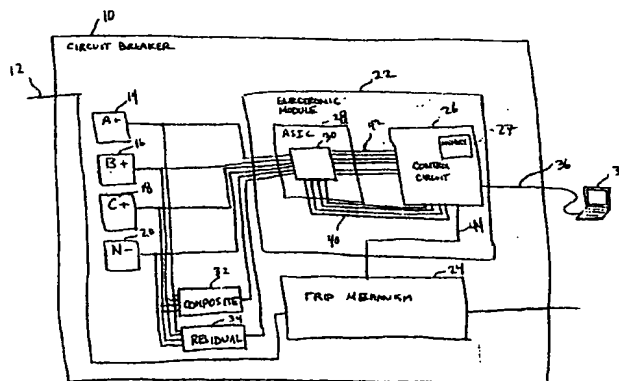 10
CIRCUIT BREAKER
12
14
A+
16
B+
18
C+
20
N-
22
ELECTRONIC MODULE
28
ASIC
30
42
26
27
CONTROL
CIRCUIT
36
3
40
44
24
32
COMPOSITE
34
RESIDUAL
TRIP MECHANISM